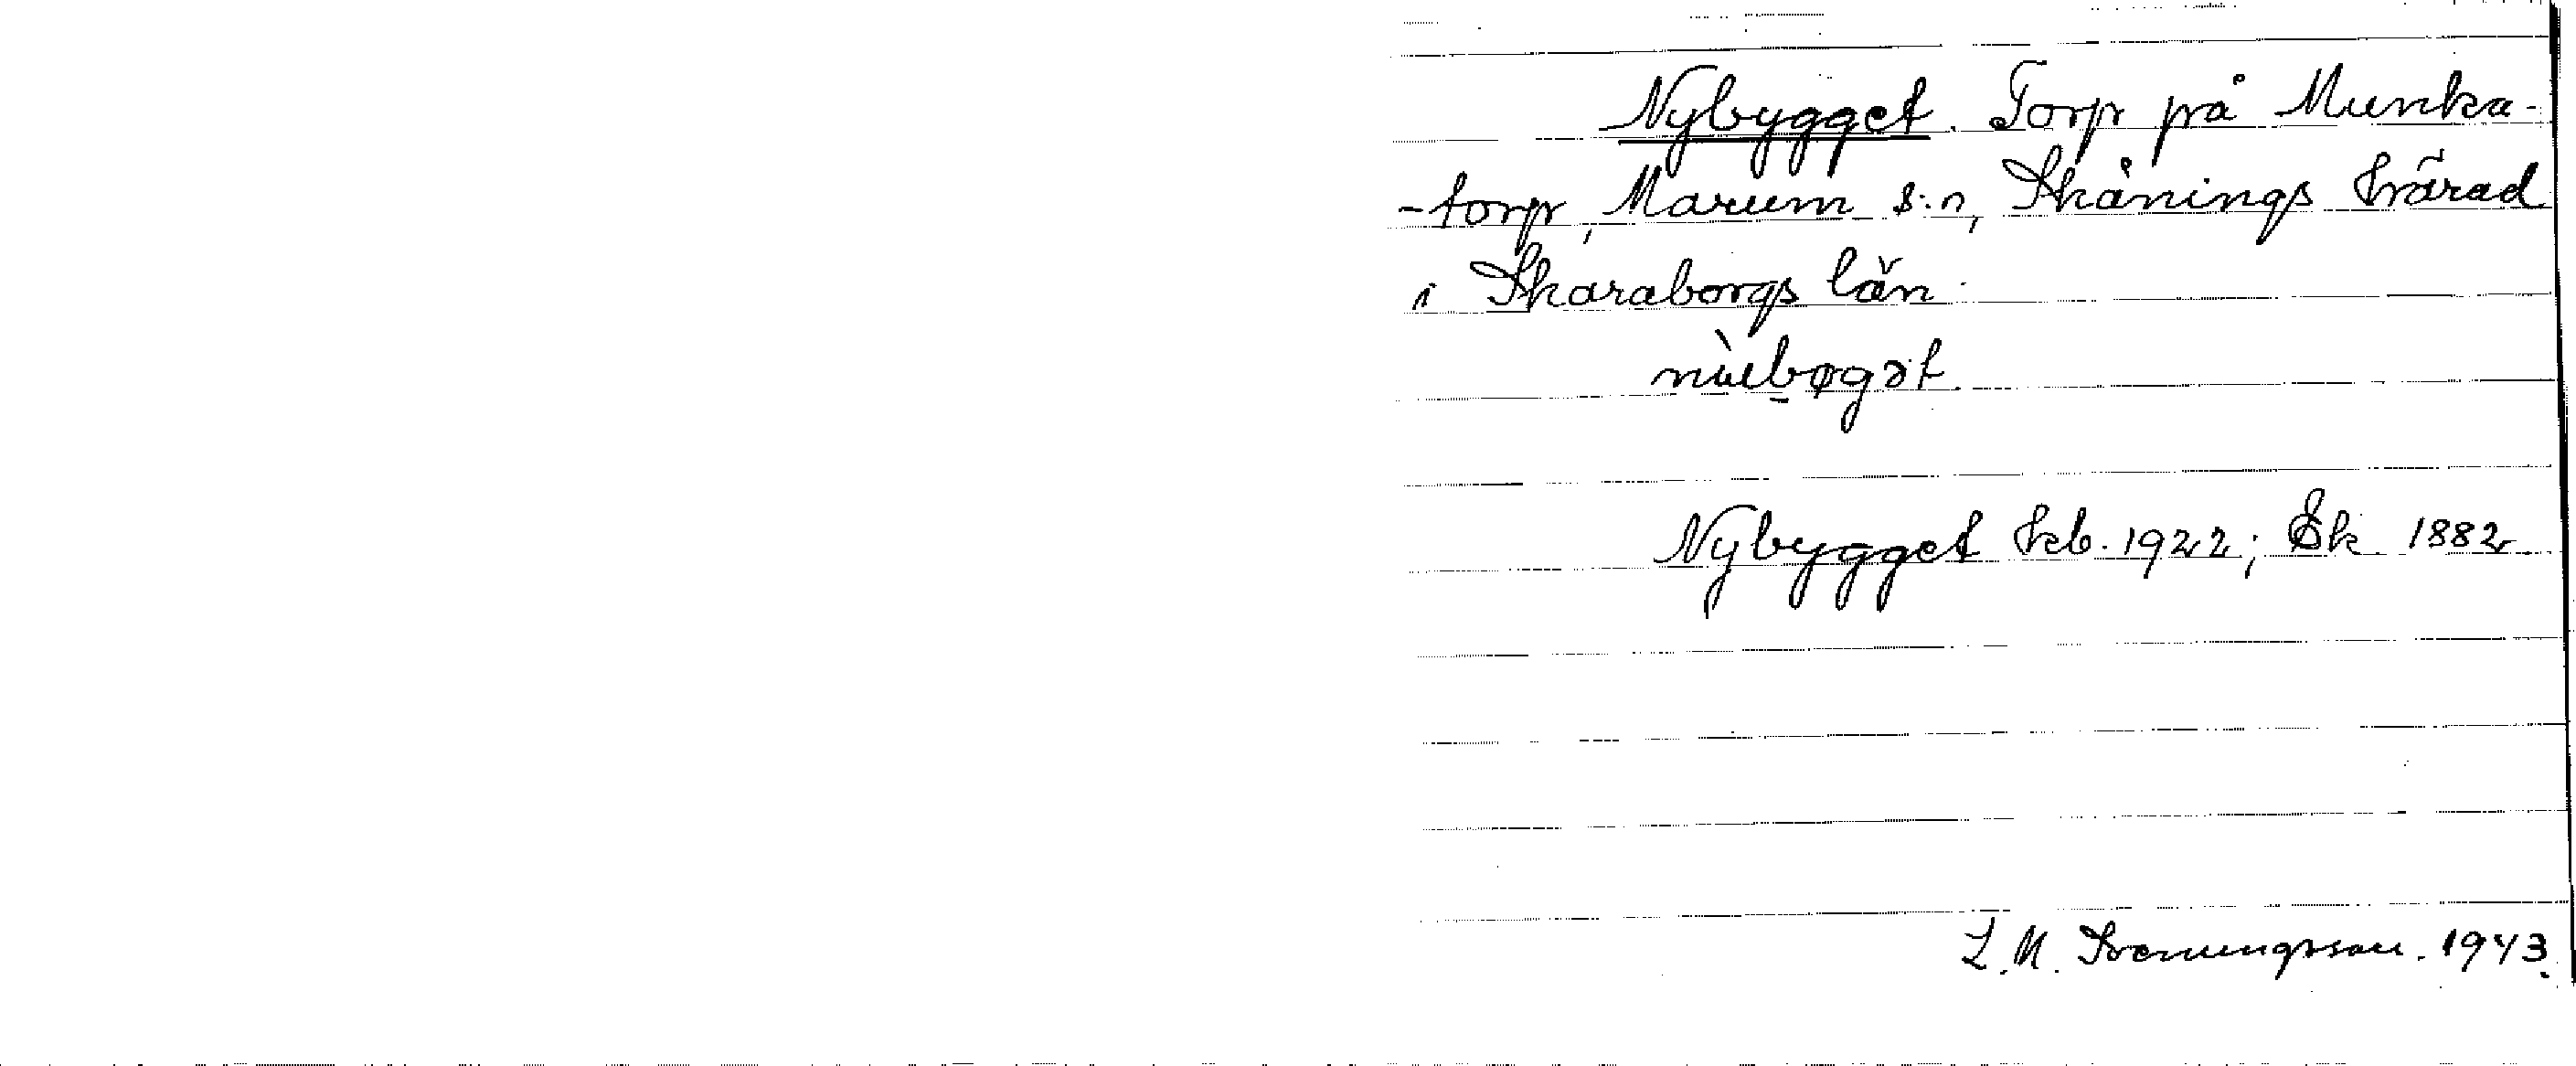 Nybygget. Torp på Munka-
-torp, Marum s:n, Skånings härad
i Skaraborgs län.
nùebøgət
Nybygget kb. 1922; Ek 1882
L. M. Svenungsson. 1943.